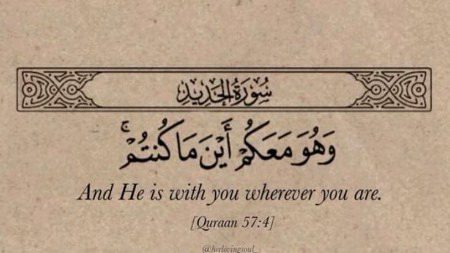 سُورَةُ الحَدِيدِ
وَهُوَ مَعَكُمْ أَيْنَ مَا كُنتُمْ ۚ
And He is with you wherever you are.
[Quraan 57:4]
@herlivingsoul_